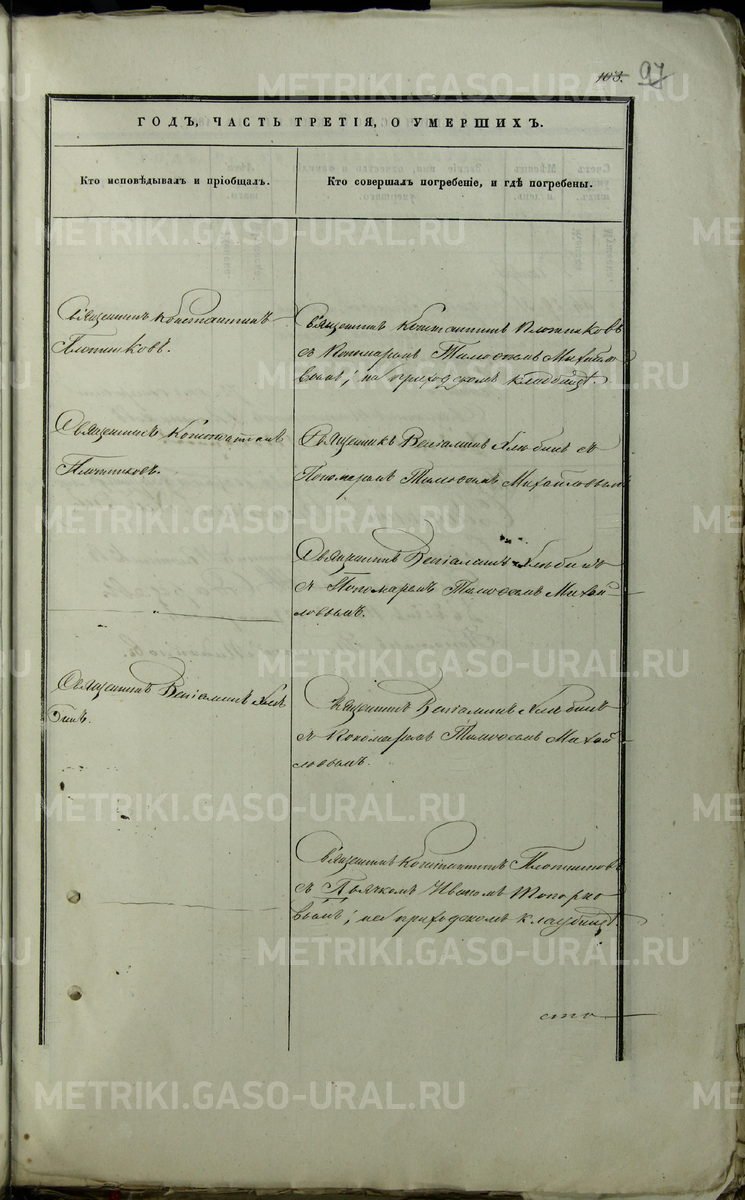 103. 97
ГОДЪ, ЧАСТЬ ТРЕТІЯ, О УМЕРШИХЪ.
Кто исповѣдывалъ и пріобщалъ.
Кто совершалъ погребеніе, и гдѣ погребены.
Священникъ Константинъ
Плотниковъ.
Священникъ Константинъ Плотниковъ
съ Пономаремъ Тимофеемъ Михайло
вымъ; на приходскомъ кладбищѣ.
Священникъ Константинъ
Плотниковъ.
Священникъ Веніаминъ Хлѣбинъ съ
Пономаремъ Тимофеемъ Михайловымъ
Священникъ Веніаминъ Хлѣбинъ
съ Пономаремъ Тимофеемъ Михай
ловымъ.
Священникъ Веніаминъ Хлѣ
бинъ.
Священникъ Веніаминъ Хлѣбинъ
съ Пономаремъ Тимофеемъ Михай
ловымъ.
Священникъ Константинъ Плотниковъ
съ Дьячкомъ Иваномъ Топорко
вымъ; на приходскомъ кладбищѣ.
сто
METRIKI.GASO-URAL.RU